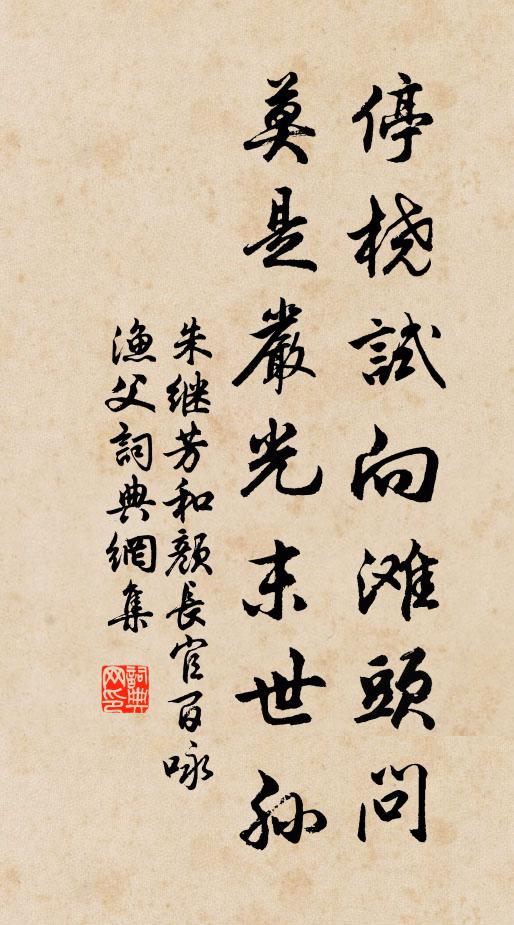 停桡試向滩頭問
莫是嚴光末世孫
朱继芳和顏長官百咏
漁父詞典網集
詞典网印